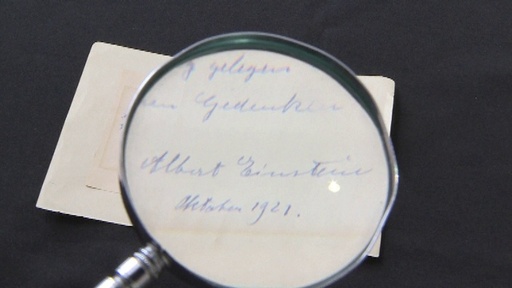 gelegen
Gedenken
Albert Einstein
Oktober 1921.